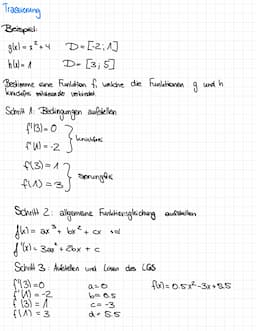 Trassierung
Beispiel:
g(x) = x² + 4 D = [-2; 1]
h(x) = 1 D = [3; 5]
Bestimme eine Funktion f, welche die Funktionen g und h
knickfrei miteinander verbindet
Schritt 1: Bedingungen aufstellen
f'(3) = 0
f'(1) = -2 } knickfrei
f(3) = 1
f(1) = 3 } sprungfrei
Schritt 2: allgemeine Funktionsgleichung aufstellen
f(x) = ax³ + bx² + cx + d
f'(x) = 3ax² + 2bx + c
Schritt 3: Aufstellen und Lösen des LGS
f'(3) = 0 a = 0 f(x) = 0.5x² - 3x + 5.5
f'(1) = -2 b = 0.5
f(3) = 1 c = -3
f(1) = 3 d = 5.5